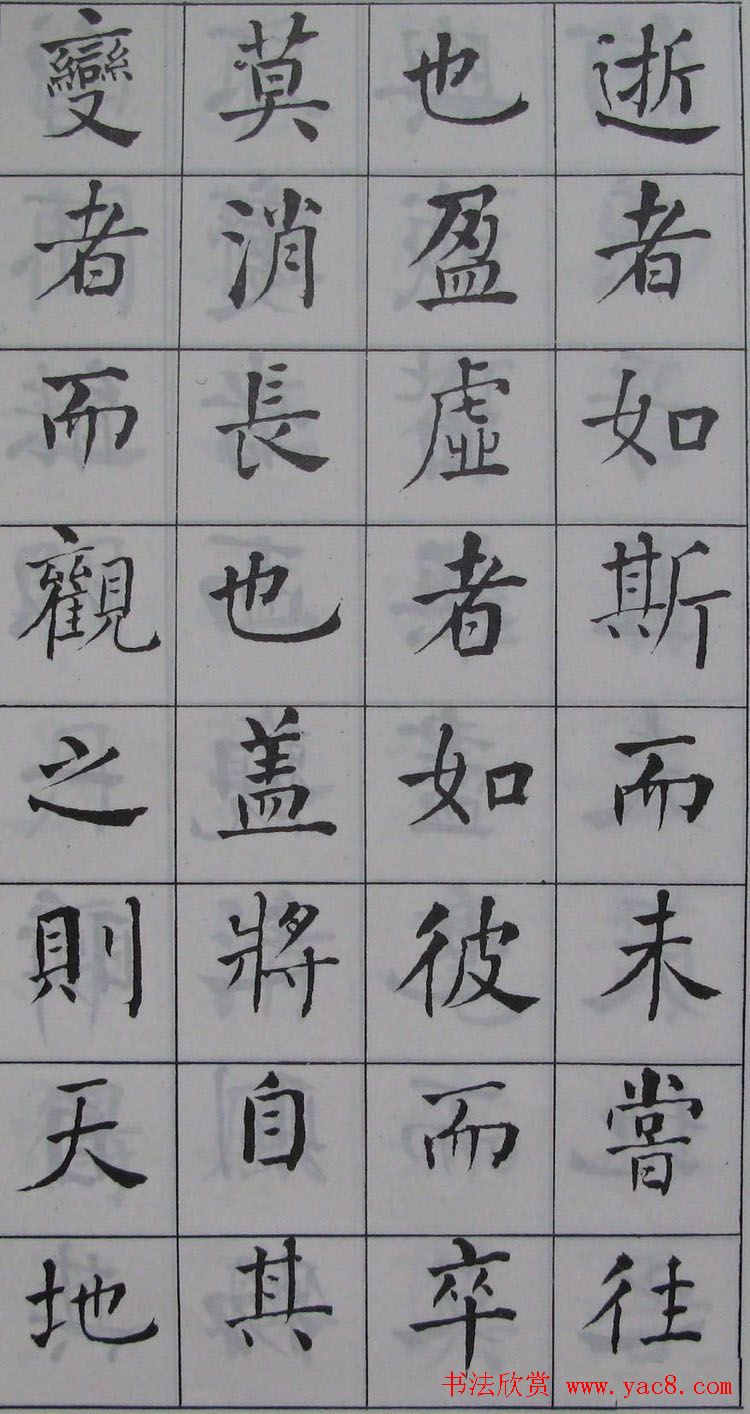 逝者如斯而未嘗往
也盈虛者如彼而卒
莫消長也盖將自其
變者而觀之則天地
书法欣赏 www.yac8.com